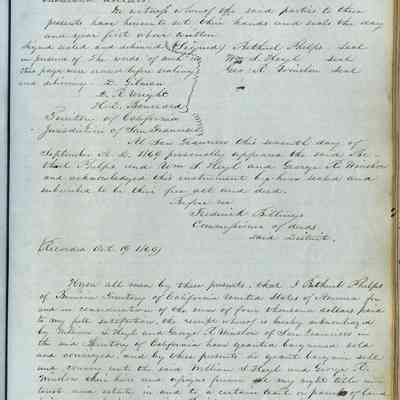 In witness whereof the said parties to these
presents have hereunto set their hands and seals the day
and year first above written
Signed sealed and delivered (Signed) Bethuel Phelps Seal
in presence of The words of and Wm S. Hoyt Seal
this page were erased before sealing Geo. R. Winslow Seal
and delivering
D. R. Wright
Territory of California
Jurisdiction of San Francisco
At San Francisco this seventh day of
September A.D. 1849 personally appeared the said Be-
thuel Phelps and Wm S. Hoyt and George R. Winslow
and acknowledged this instrument by them sealed and
subscribed to be their free act and deed.
Before me
Frederick Billings
Commissioner of deeds
said District.
Recorded Oct. 19 1849
Know all men by these presents, that I Bethuel Phelps
of Benicia Territory of California United States of America for
and in consideration of the sum of four thousand dollars paid
to my full satisfaction, the receipt whereof is hereby acknowledged
by William S Hoyt and George R. Winslow of San Francisco in
the said Territory of California have granted bargained sold
and conveyed, and by these presents do grant bargain sell
and convey unto the said William S Hoyt and George R.
Winslow their heirs and assigns forever all my right title in-
terest and estate in and to a certain tract or parcel of land